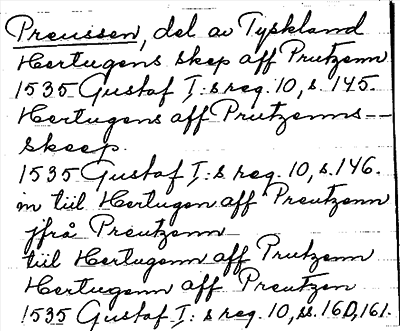 Preussen, del av Tyskland
Hertugens skep aff Prutzenn
1535 Gustaf I:s reg. 10, s. 145.
Hertugens aff Prutzenns--
skeep.
1535 Gustaf I:s reg. 10, s. 146.
in tiil Hertugen aff Preutzenn
ifrå Preutzenn
tiil Hertugenn aff Prutzenn
Hertugenn aff Preutzen
1535 Gustaf I:s reg. 10, ss. 160, 161.